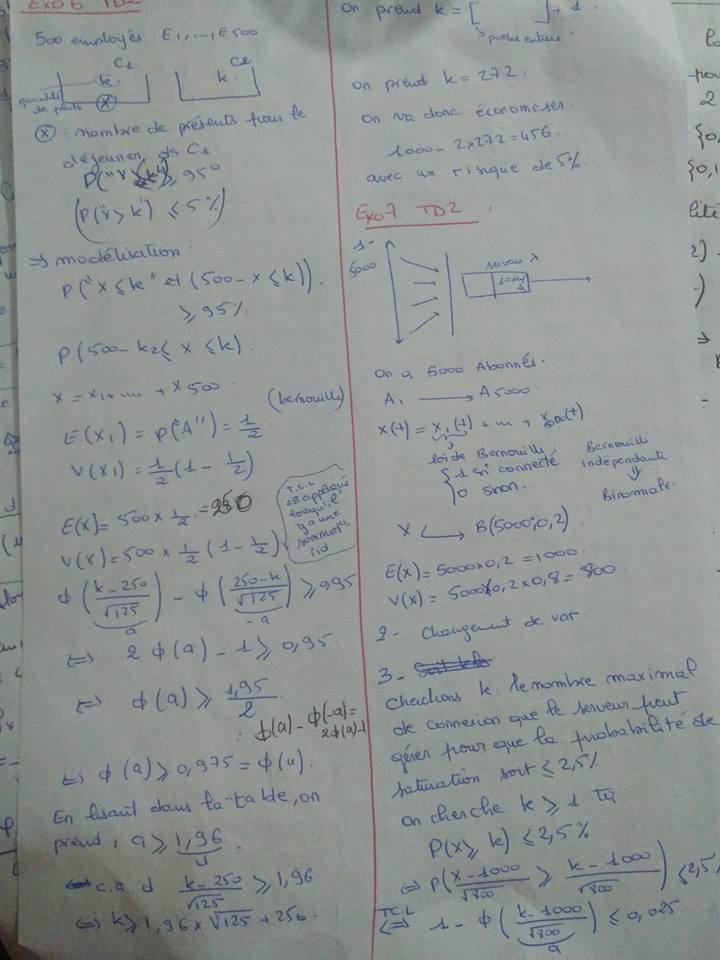 Exo 6 TD2
500 employés E1, ..., E500
C1
C2
k
k
quantité
de plats
X
(X) : nombre de présents pour le
déjeuner ds C1.
P("X ≤ k") ≥ 95%
(P(X > k) ≤ 5%)
⇒ modélisation
P("X ≤ k" et (500 - X ≤ k)).
≥ 95%
P(500 - k ≤ X ≤ k).
X = X1 + ... + X500
(bernouilli)
E(X1) = P("A") = 1/2
V(X1) = 1/2 (1 - 1/2)
T.C.L
est appliqué
lorsqu'il
y a une
somme
iid
E(X) = 500 × 1/2 = 250
V(X) = 500 × 1/2 (1 - 1/2)
ϕ((k-250)/√125) - ϕ((250-k)/√125) ≥ 0,95
a
-a
⇔ 2ϕ(a) - 1 ≥ 0,95
⇔ ϕ(a) ≥ 1,95/2
: ϕ(a) - ϕ(-a) =
2ϕ(a)-1
⇔ ϕ(a) ≥ 0,975 = ϕ(u).
En lisant dans la table, on
prend, a ≥ 1,96
u
c.a d (k-250)/√125 ≥ 1,96
⇔ k ≥ 1,96 × √125 + 250.
On prend k = [ ] + 1.
↳ partie entière
On prend k = 272.
On va donc économiser
1000 - 2×272 = 456
avec un risque de 5%
Exo 7 TD2
1-
5000
serveur λ
On a 5000 Abonnés.
A1 → A5000
X(t) = X1(t) + ... + X5000(t)
loi de Bernouilli
{ 1 si connecté
0 sinon.
Bernouilli
indépendante
⇓
Binomiale.
X ↪ B(5000; 0,2)
E(X) = 5000×0,2 = 1000
V(X) = 5000×0,2×0,8 = 800
2- Changement de var.
3-
Cherchons k le nombre maximal
de connexion que le serveur peut
gérer pour que la probabilité de
saturation soit ≤ 2,5%
On cherche k ≥ 1 tq
P(X ≥ k) ≤ 2,5%
⇔ P((X-1000)/√800 ≥ (k-1000)/√800) ≤ 2,5
T.C.L
⇔ 1 - ϕ((k-1000)/√800) ≤ 0,025
a